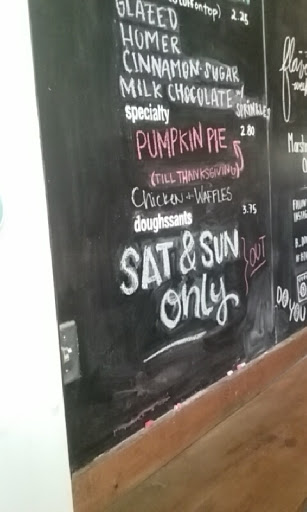 GLAZED 2.25
HOMER
CINNAMON-SUGAR
MILK CHOCOLATE W/ SPRINKLES
specialty 2.80
PUMPKIN PIE
(TILL THANKSGIVING)
CHICKEN + WAFFLES
doughssants 3.75
SAT & SUN
only
OUT
DO YOU